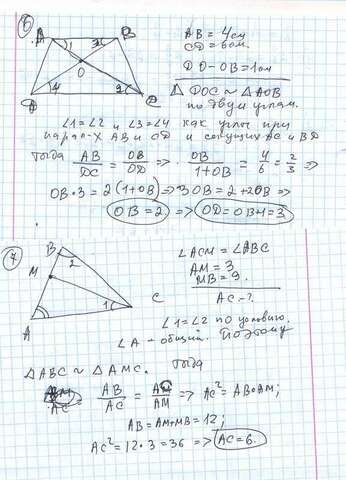 6
A B
1 3
O
4 2
D C
AB = 4см
CD = 6см.
DO-OB = 1см
△ DOC ~ △AOB
по двум углам.
∠1=∠2 и ∠3=∠4 как углы при
парал-х AB и CD и секущих AC и BD
тогда AB/DC = OB/OD => OB/1+OB = 4/6 = 2/3 =>
OB·3 = 2(1+OB) => 3OB = 2+2OB =>
OB=2 => OD=OB+1=3
7
B
2
M
1
C
A
∠ACM = ∠ABC
AM = 3
MB = 9.
AC-?
∠1=∠2 по условию.
∠A - общий. Поэтому
△ABC ~ △AMC. Тогда
AB/AC = AC/AM => AC² = AB·AM;
AB=AM+MB=12;
AC² = 12·3 = 36 => AC=6.